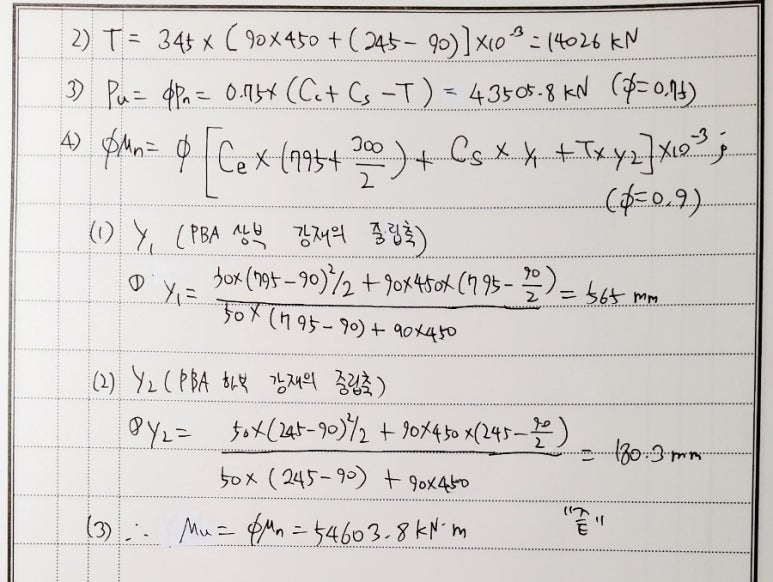 2) T = 345 x [ 90x450 + (245 - 90)] x10⁻³ = 14026 kN
3) Pu = ϕPn = 0.75x (Cc + Cs - T) = 43505.8 kN (ϕ=0.75)
4) ϕMn = ϕ [ Cc x (795 + 300/2) + Cs x y₁ + T x y2 ] x10⁻³ ; (ϕ=0.9)
(1) y₁ (PBA 상부 강재의 중립축)
① y₁ = (50x(795-90)²/2 + 90x450x(795 - 90/2)) / (50x(795-90) + 90x450) = 565 mm
(2) y2 (PBA 하부 강재의 중립축)
② y2 = (50x(245-90)²/2 + 90x450x(245 - 90/2)) / (50x(245-90) + 90x450) = 180.3 mm
(3) ∴ Mu = ϕMn = 54603.8 kN·m "끝"